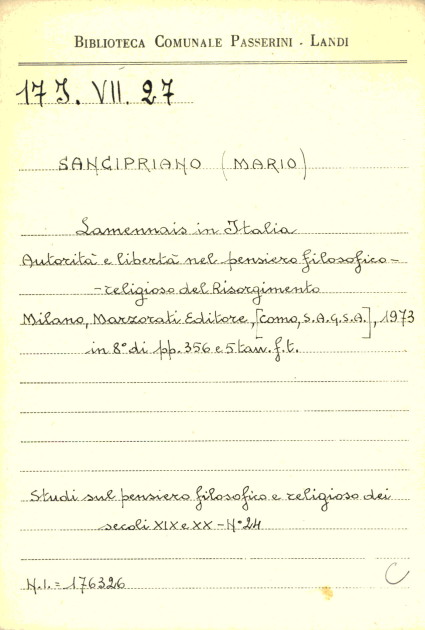 BIBLIOTECA COMUNALE PASSERINI - LANDI
17 J. VII. 27
SANCIPRIANO (MARIO)
Lamennais in Italia
Autorità e libertà nel pensiero filosofico-
-religioso del Risorgimento
Milano, Marzorati Editore, [Como, S.A.G.S.A.], 1973
in 8° di pp. 356 e 5 tav. f.t.
Studi sul pensiero filosofico e religioso dei
secoli XIX e XX - N° 24
N.I. = 176326
C